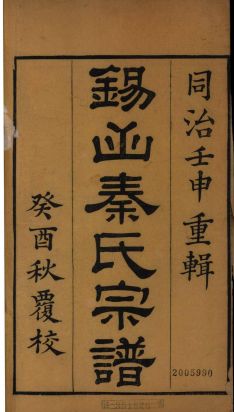 同治壬申重輯
錫山秦氏宗譜
癸酉秋覆校
2005930